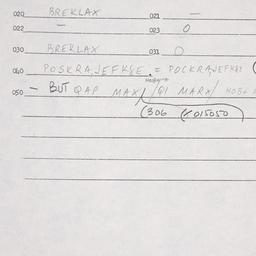 020 BREKLAX 021 —
022 — 023 0
030 BREKLAX 031 0
040 POSKRAJEFKSE. = POCKRAJEFKSE (
050 — BUT QAP MAX / QI MARX/
(306